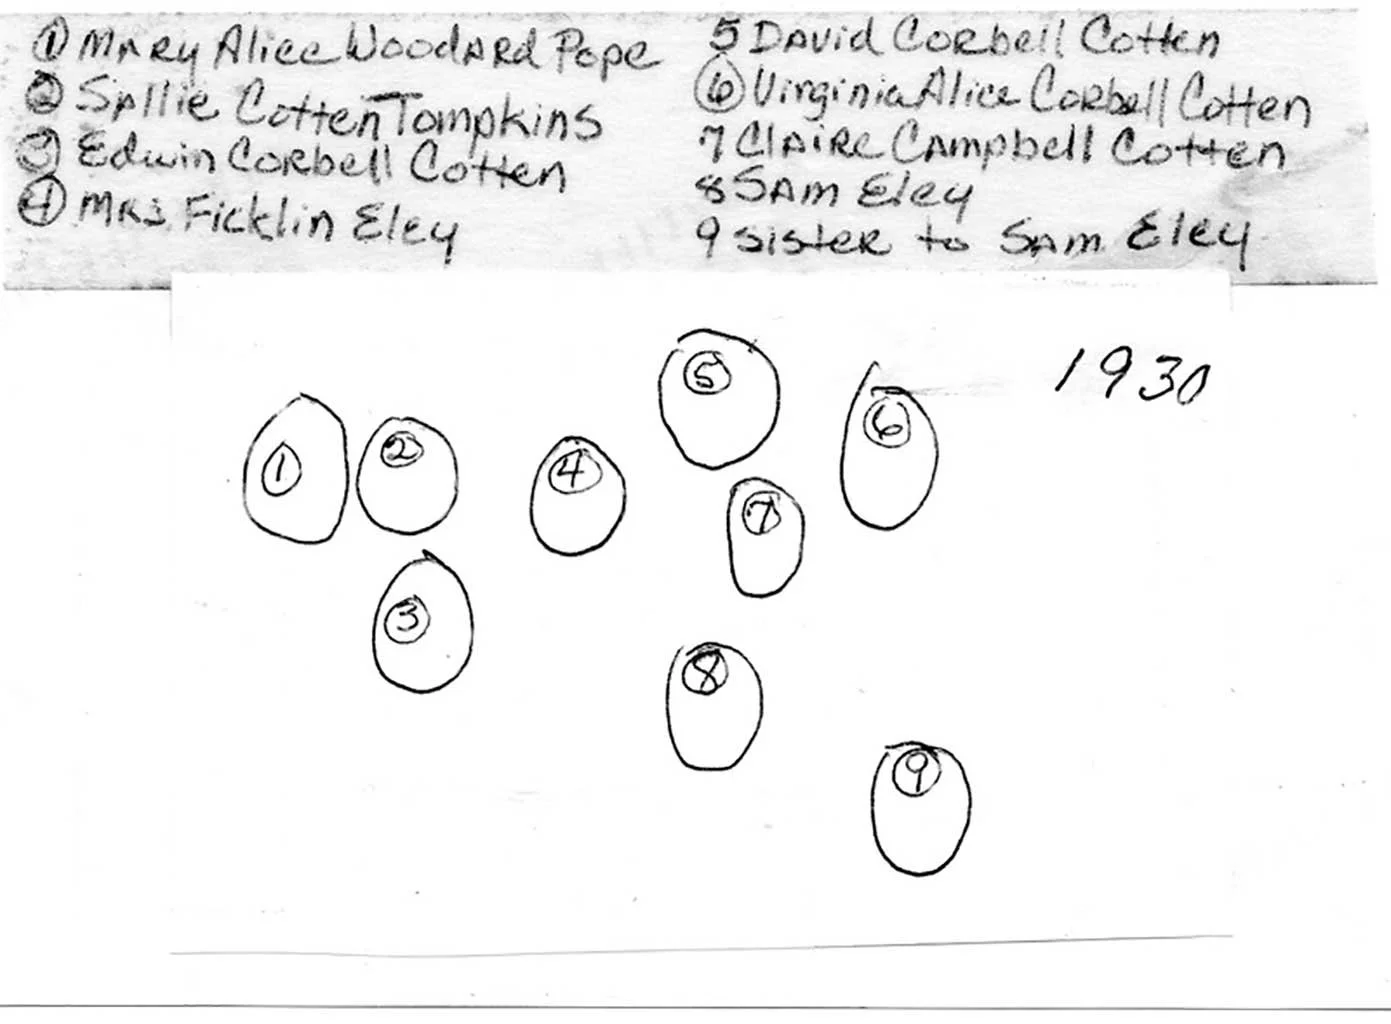 ① Mary Alice Woodard Pope
② Sallie Cotten Tompkins
③ Edwin Corbell Cotten
④ Mrs. Ficklin Eley
5 David Corbell Cotten
⑥ Virginia Alice Corbell Cotten
7 Claire Campbell Cotten
8 Sam Eley
9 sister to Sam Eley
1930
⑤
⑥
①
②
④
⑦
③
⑧
⑨